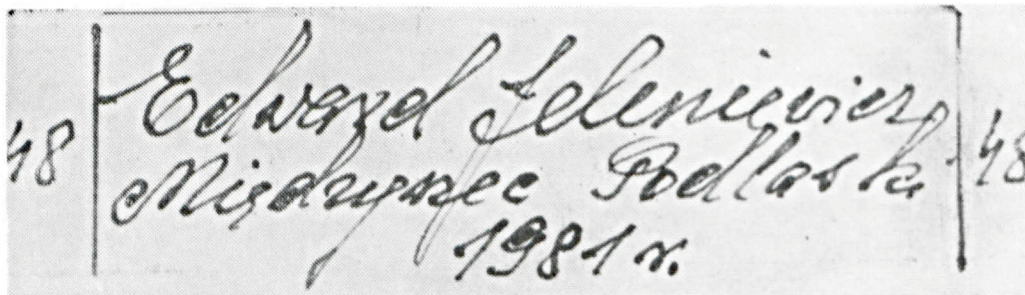 Edward Jeleniewicz
48 Międzyrzec Podlaski 48
1981 r.